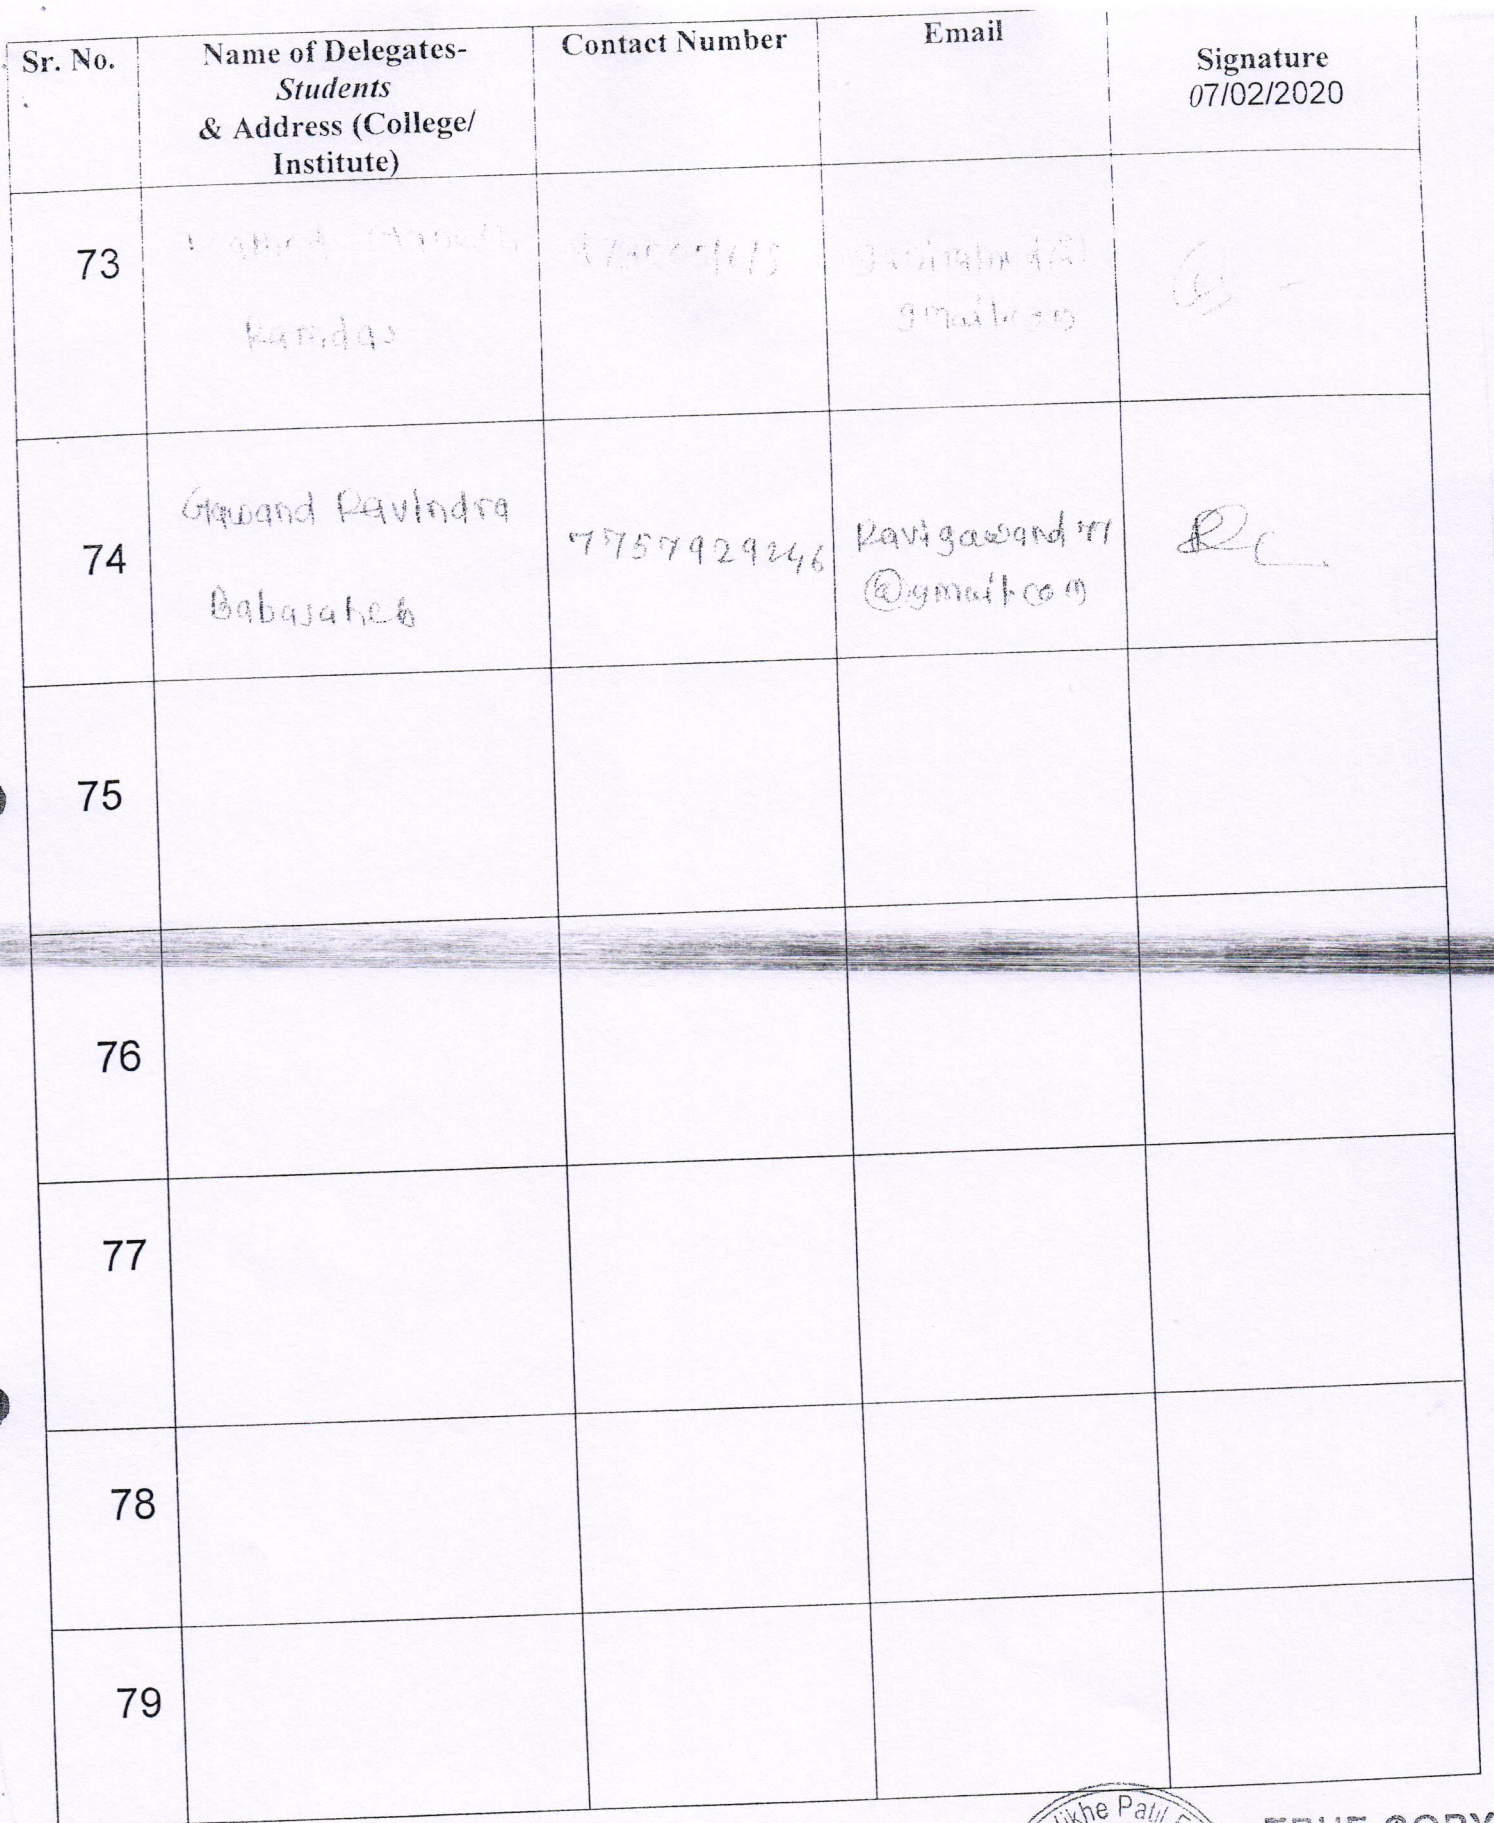 Sr. No.
Name of Delegates-
Students
& Address (College/
Institute)
Contact Number
Email
Signature
07/02/2020
73
Ramdas
74
Gawand Ravindra
Babasaheb
7757929246
Ravigawand77
@gmail.com
75
76
77
78
79
ikhe Patil
TRUE COPY